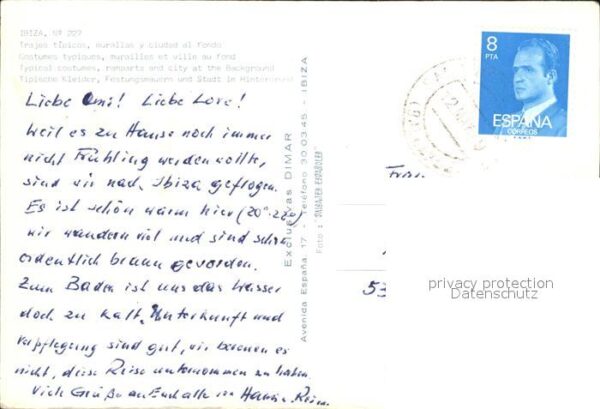 IBIZA, Nº 227
Trajes típicos, murallas y ciudad al fondo
Costumes typiques, murailles et ville au fond
Typical costumes, ramparts and city at the Background
Tipische Kleider, Festungsmauern und Stadt im Hintergrund
Liebe Omi! Liebe Lore!
Weil es zu Hause noch immer
nicht Frühling werden wollte,
sind wir nach Ibiza geflogen.
Es ist schön warm hier (20°-22°)
wir wandern viel und sind schon
ordentlich braun geworden.
Zum Baden ist uns das Wasser
doch zu kalt. Unterkunft und
Verpflegung sind gut, wir bereuen es
nicht, diese Reise unternommen zu haben.
Viele Grüße an Euch alle von
Exclusivas DIMAR
Avenida España, 17 - Teléfono 30.03.45 - IBIZA
8
PTA
ESPAÑA
CORREOS
Frau
53
privacy protection
Datenschutz